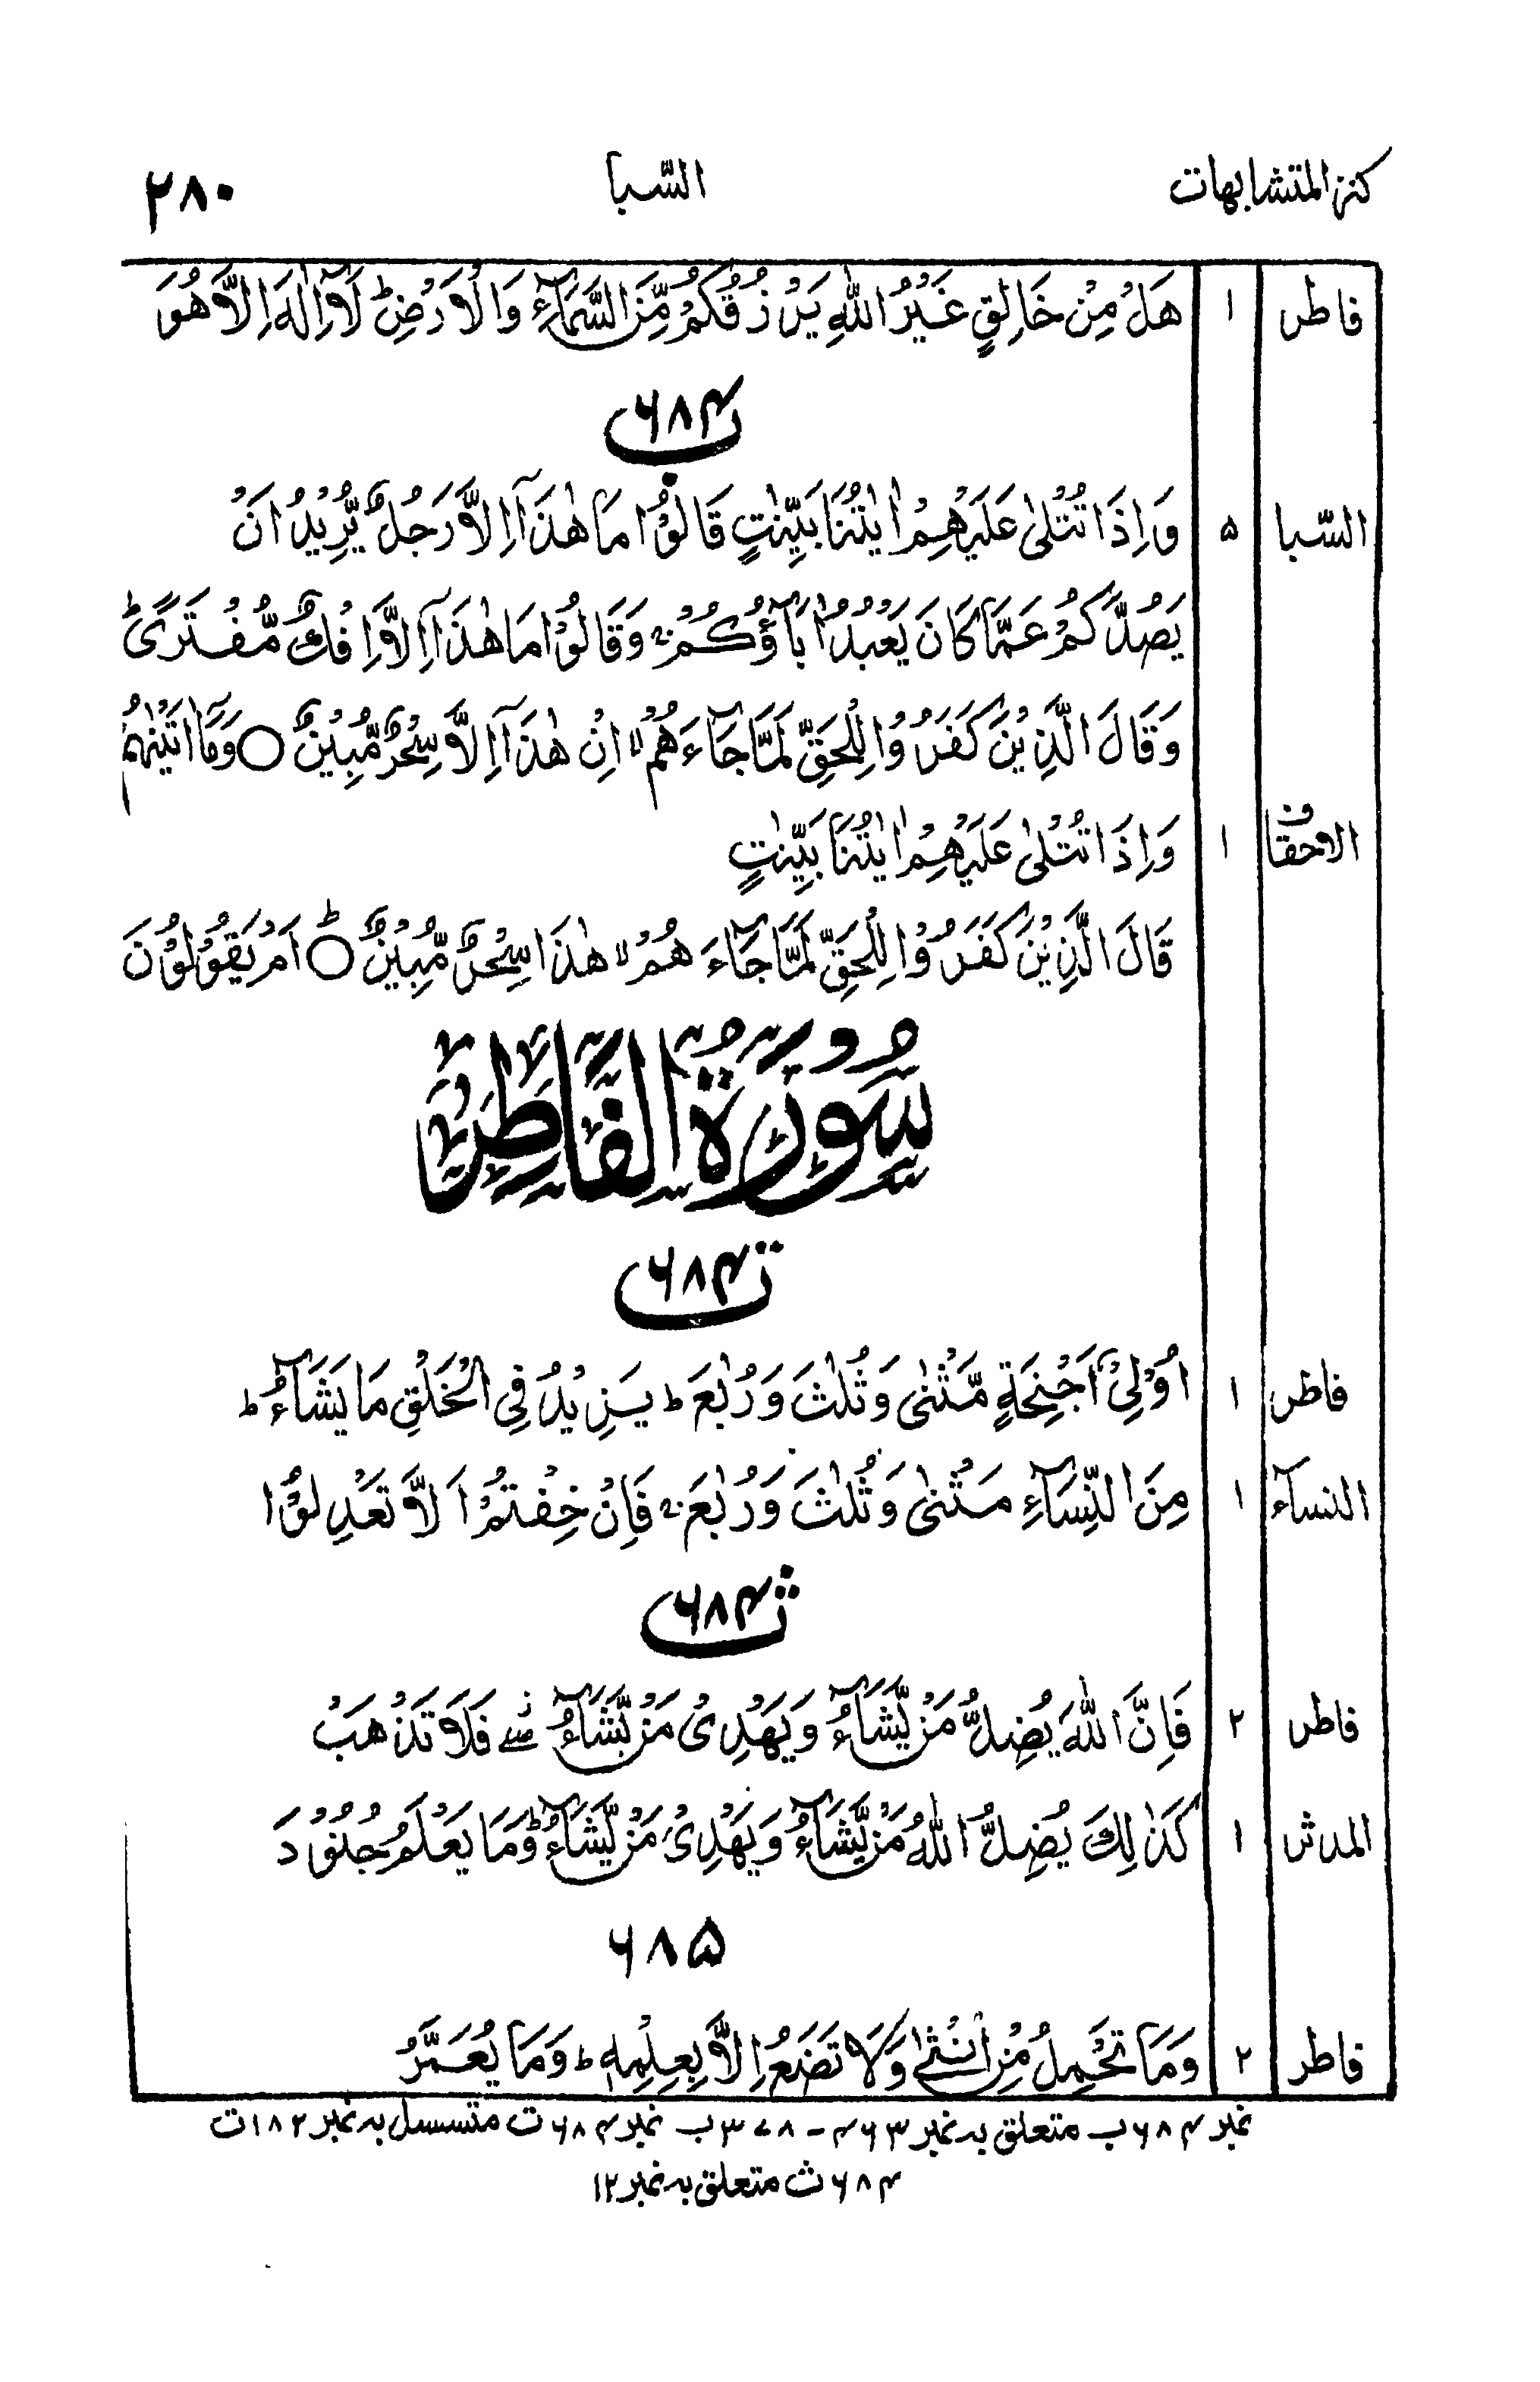 کنز المتشابہات السّبا ۲۸۰
فاطر ۱ هَلْ مِنْ خَالِقٍ غَيْرُ اللّٰهِ يَرْزُقُكُمْ مِّنَ السَّمَآءِ وَالْاَرْضِ ؕ لَآ اِلٰهَ اِلَّا هُوَ
۶۸۴ب
السّبا ۵ وَاِذَا تُتْلٰى عَلَيْهِمْ اٰيٰتُنَا بَيِّنٰتٍ قَالُوْا مَا هٰذَآ اِلَّا رَجُلٌ يُّرِيْدُ اَنْ
يَّصُدَّكُمْ عَمَّا كَانَ يَعْبُدُ اٰبَآؤُكُمْ ۚ وَقَالُوْا مَا هٰذَآ اِلَّآ اِفْكٌ مُّفْتَرًى ؕ
وَقَالَ الَّذِيْنَ كَفَرُوْا لِلْحَقِّ لَمَّا جَآءَهُمْ ۙ اِنْ هٰذَآ اِلَّا سِحْرٌ مُّبِيْنٌ ○ وَمَآ اٰتَيْنٰهُمْ
الاحقاف ۱ وَاِذَا تُتْلٰى عَلَيْهِمْ اٰيٰتُنَا بَيِّنٰتٍ
قَالَ الَّذِيْنَ كَفَرُوْا لِلْحَقِّ لَمَّا جَآءَهُمْ ۙ هٰذَا سِحْرٌ مُّبِيْنٌ ○ؕ اَمْ يَقُوْلُوْنَ
سُوْرَةُ الْفَاطِرِ
۶۸۴ت
فاطر ۱ اُولِيْٓ اَجْنِحَةٍ مَّثْنٰى وَثُلٰثَ وَرُبٰعَ ؕ يَزِيْدُ فِي الْخَلْقِ مَا يَشَآءُ ؕ
النسآء ۱ مِنَ النِّسَآءِ مَثْنٰى وَثُلٰثَ وَرُبٰعَ ۚ فَاِنْ خِفْتُمْ اَلَّا تَعْدِلُوْا
۶۸۴ث
فاطر ۲ فَاِنَّ اللّٰهَ يُضِلُّ مَنْ يَّشَآءُ وَيَهْدِيْ مَنْ يَّشَآءُ ۖ فَلَا تَذْهَبْ
المدثر ۱ كَذٰلِكَ يُضِلُّ اللّٰهُ مَنْ يَّشَآءُ وَيَهْدِيْ مَنْ يَّشَآءُ ؕ وَمَا يَعْلَمُ جُنُوْدَ
۶۸۵
فاطر ۲ وَمَا تَحْمِلُ مِنْ اُنْثٰى وَلَا تَضَعُ اِلَّا بِعِلْمِهٖ ؕ وَمَا يُعَمَّرُ
نمبر ۶۸۴ب متعلق بہ نمبر ۴۶۳ - ۳۷۸ب نمبر ۶۸۴ت متسسل بہ نمبر ۱۸۲ت
۶۸۴ث متعلق بہ نمبر ۱۲